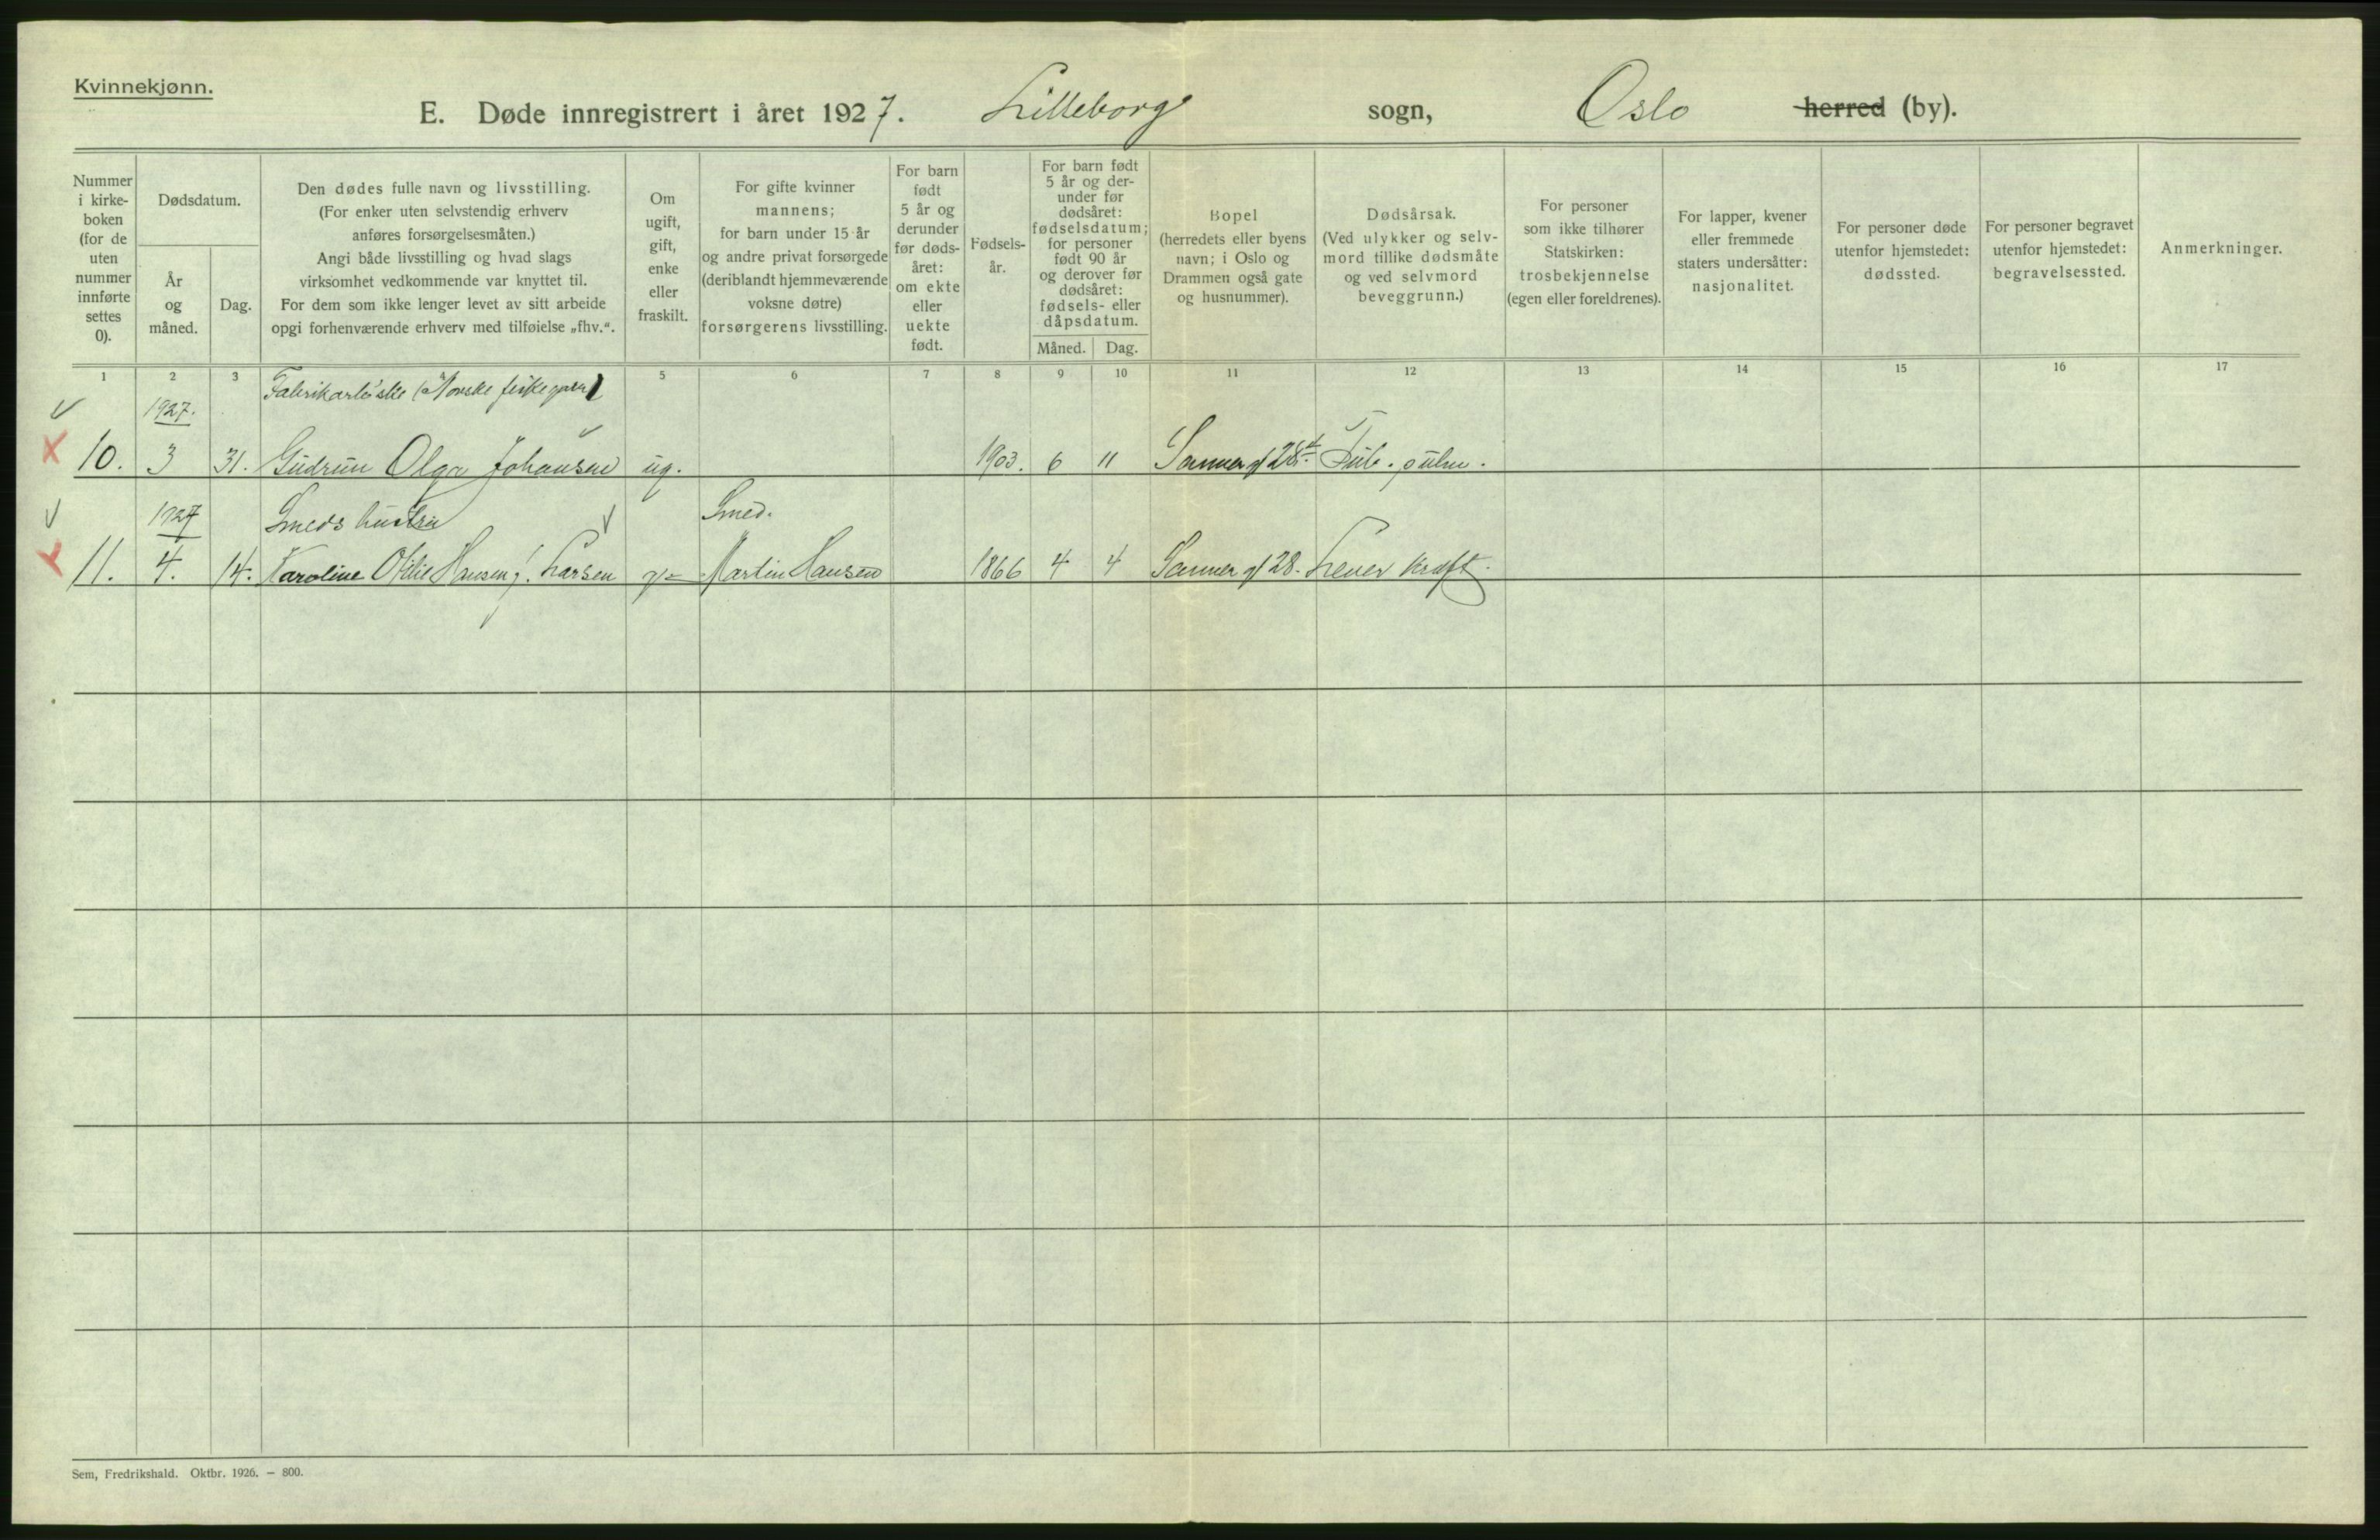 Kvinnekjønn.
E. Døde innregistrert i året 1927. Lilleborg sogn, Oslo herred (by).
Nummer i kirke-boken (for de uten nummer innførte settes 0).
Dødsdatum.
År og måned.
Dag.
Den dødes fulle navn og livsstilling.
(For enker uten selvstendig erhverv
anføres forsørgelsesmåten.)
Angi både livsstilling og hvad slags
virksomhet vedkommende var knyttet til.
For dem som ikke lenger levet av sitt arbeide
opgi forhenværende erhverv med tilføielse „fhv.“.
Om ugift, gift, enke eller fraskilt.
For gifte kvinner
mannens;
for barn under 15 år
og andre privat forsørgede
(deriblandt hjemmeværende
voksne døtre)
forsørgerens livsstilling.
For barn
født
5 år og
derunder
før døds-
året:
om ekte
eller
uekte
født.
Fødsels-
år.
For barn født
5 år og der-
under før
dødsåret:
fødselsdatum;
for personer
født 90 år
og derover før
dødsåret:
fødsels- eller
dåpsdatum.
Måned. Dag.
Bopel
(herredets eller byens
navn; i Oslo og
Drammen også gate
og husnummer).
Dødsårsak.
(Ved ulykker og selv-
mord tillike dødsmåte
og ved selvmord
beveggrunn.)
For personer
som ikke tilhører
Statskirken:
trosbekjennelse
(egen eller foreldrenes).
For lapper, kvener
eller fremmede
staters undersåtter:
nasjonalitet.
For personer døde
utenfor hjemstedet:
dødssted.
For personer begravet
utenfor hjemstedet:
begravelsessted.
Anmerkninger.
1 2 3 5 6 7 8 9 10 11 12 13 14 15 16 17
1927. (Norske
10. 3 31. Gudrun Olga Johansen ug. 1903. 6 11 Sanner gt 28 Tub. pulm.
1927 Smeds hustru Smed.
11. 4. 14. Karoline Otilie Hansen f. Larsen g. Martin Hansen 1866 4 4 Sanner gt 28. Lever kræft.
Sem, Fredrikshald. Oktbr. 1926. — 800.